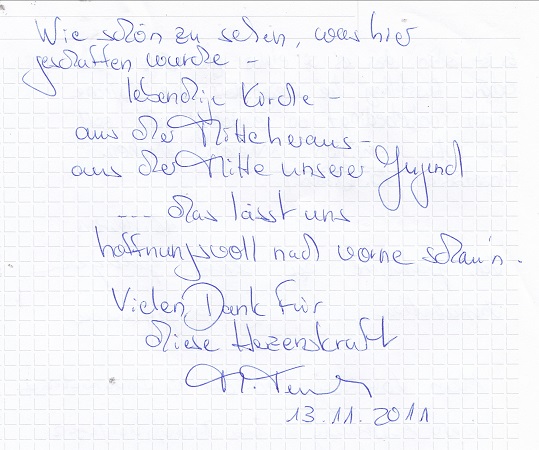 Wie schön zu sehen, was hier
geschaffen wurde -
lebendige Kirche -
aus der Mitte heraus -
aus der Mitte unserer Jugend
--- das lässt uns
hoffnungsvoll nach vorne schau'n.
Vielen Dank für
diese Herzenskraft
13.11.2011